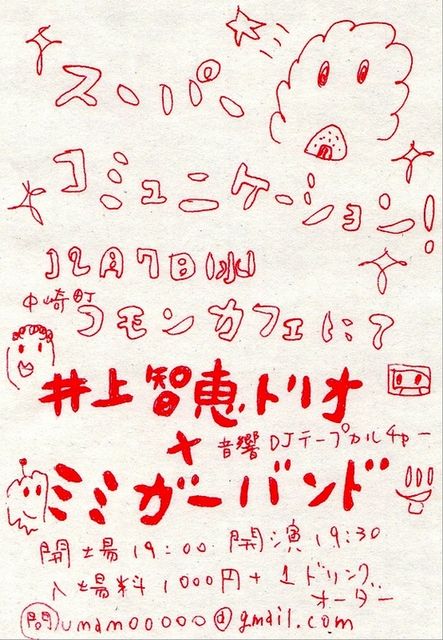 スーパー
コミュニケーション!
12月7日(水)
中崎町
コモンカフェにて
井上智恵トリオ
+ 音響DJテープカルチャー
ミミガーバンド
開場19:00 開演19:30
入場料1000円+1ドリンク
オーダー
問 umamooooo@gmail.com